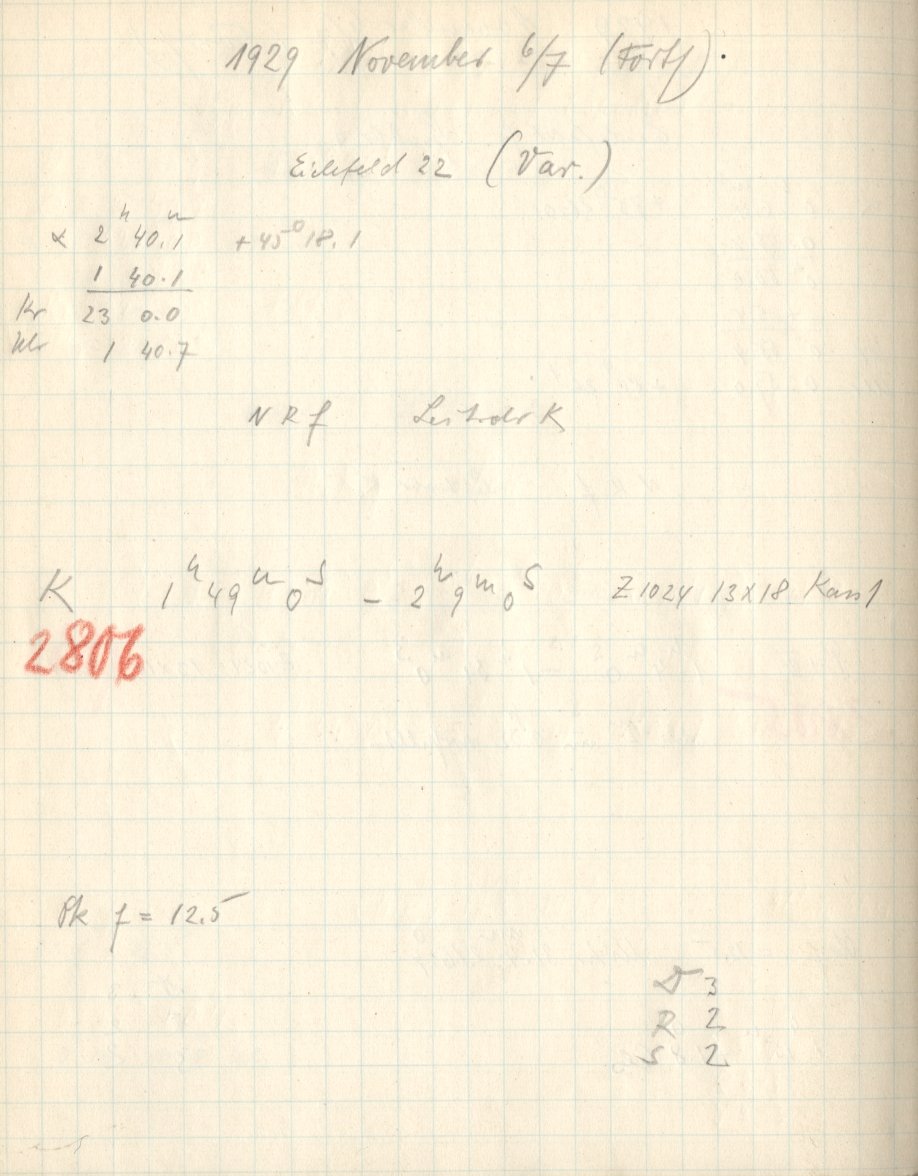 1929 November 6/7 (Forts).
Eichfeld 22 (Var.)
α 2ʰ 40.1ᵐ +45° 18.1
1 40.1
Kr 23 0.0
Uhr 1 40.7
N R f Leitrohr K
K 1ʰ 49ᵐ 0ˢ – 2ʰ 9ᵐ 0ˢ Z 1024 13x18 Kass 1
2806
Pk f = 12.5
D 3
R 2
S 2